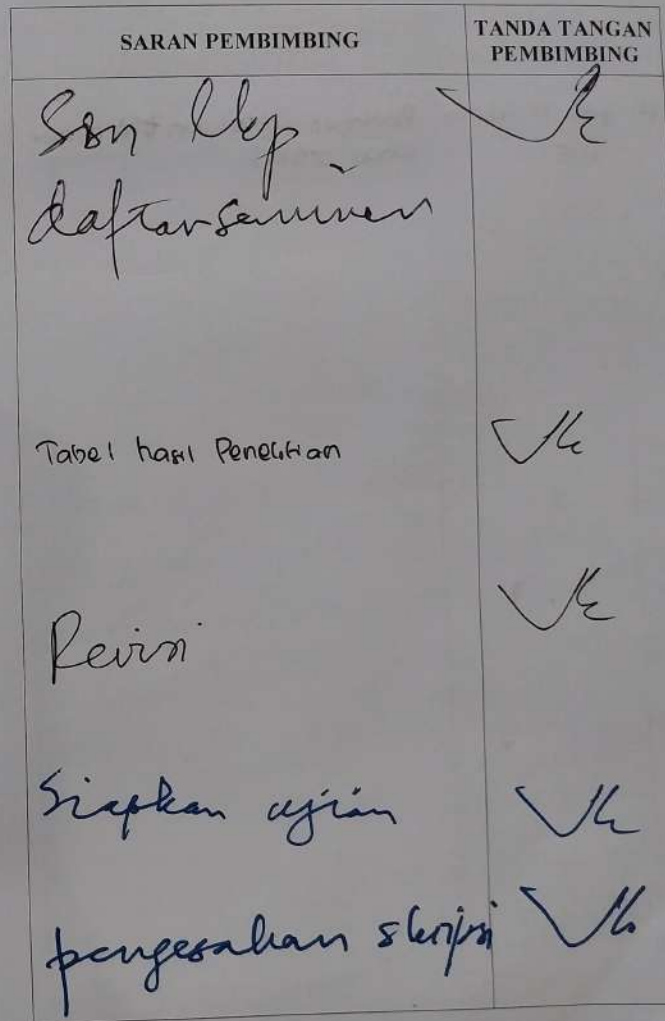 SARAN PEMBIMBING
TANDA TANGAN
PEMBIMBING
daftar seminar
Tabel hasil Penelitian
Revisi
Siapkan ujian
pengesahan skripsi